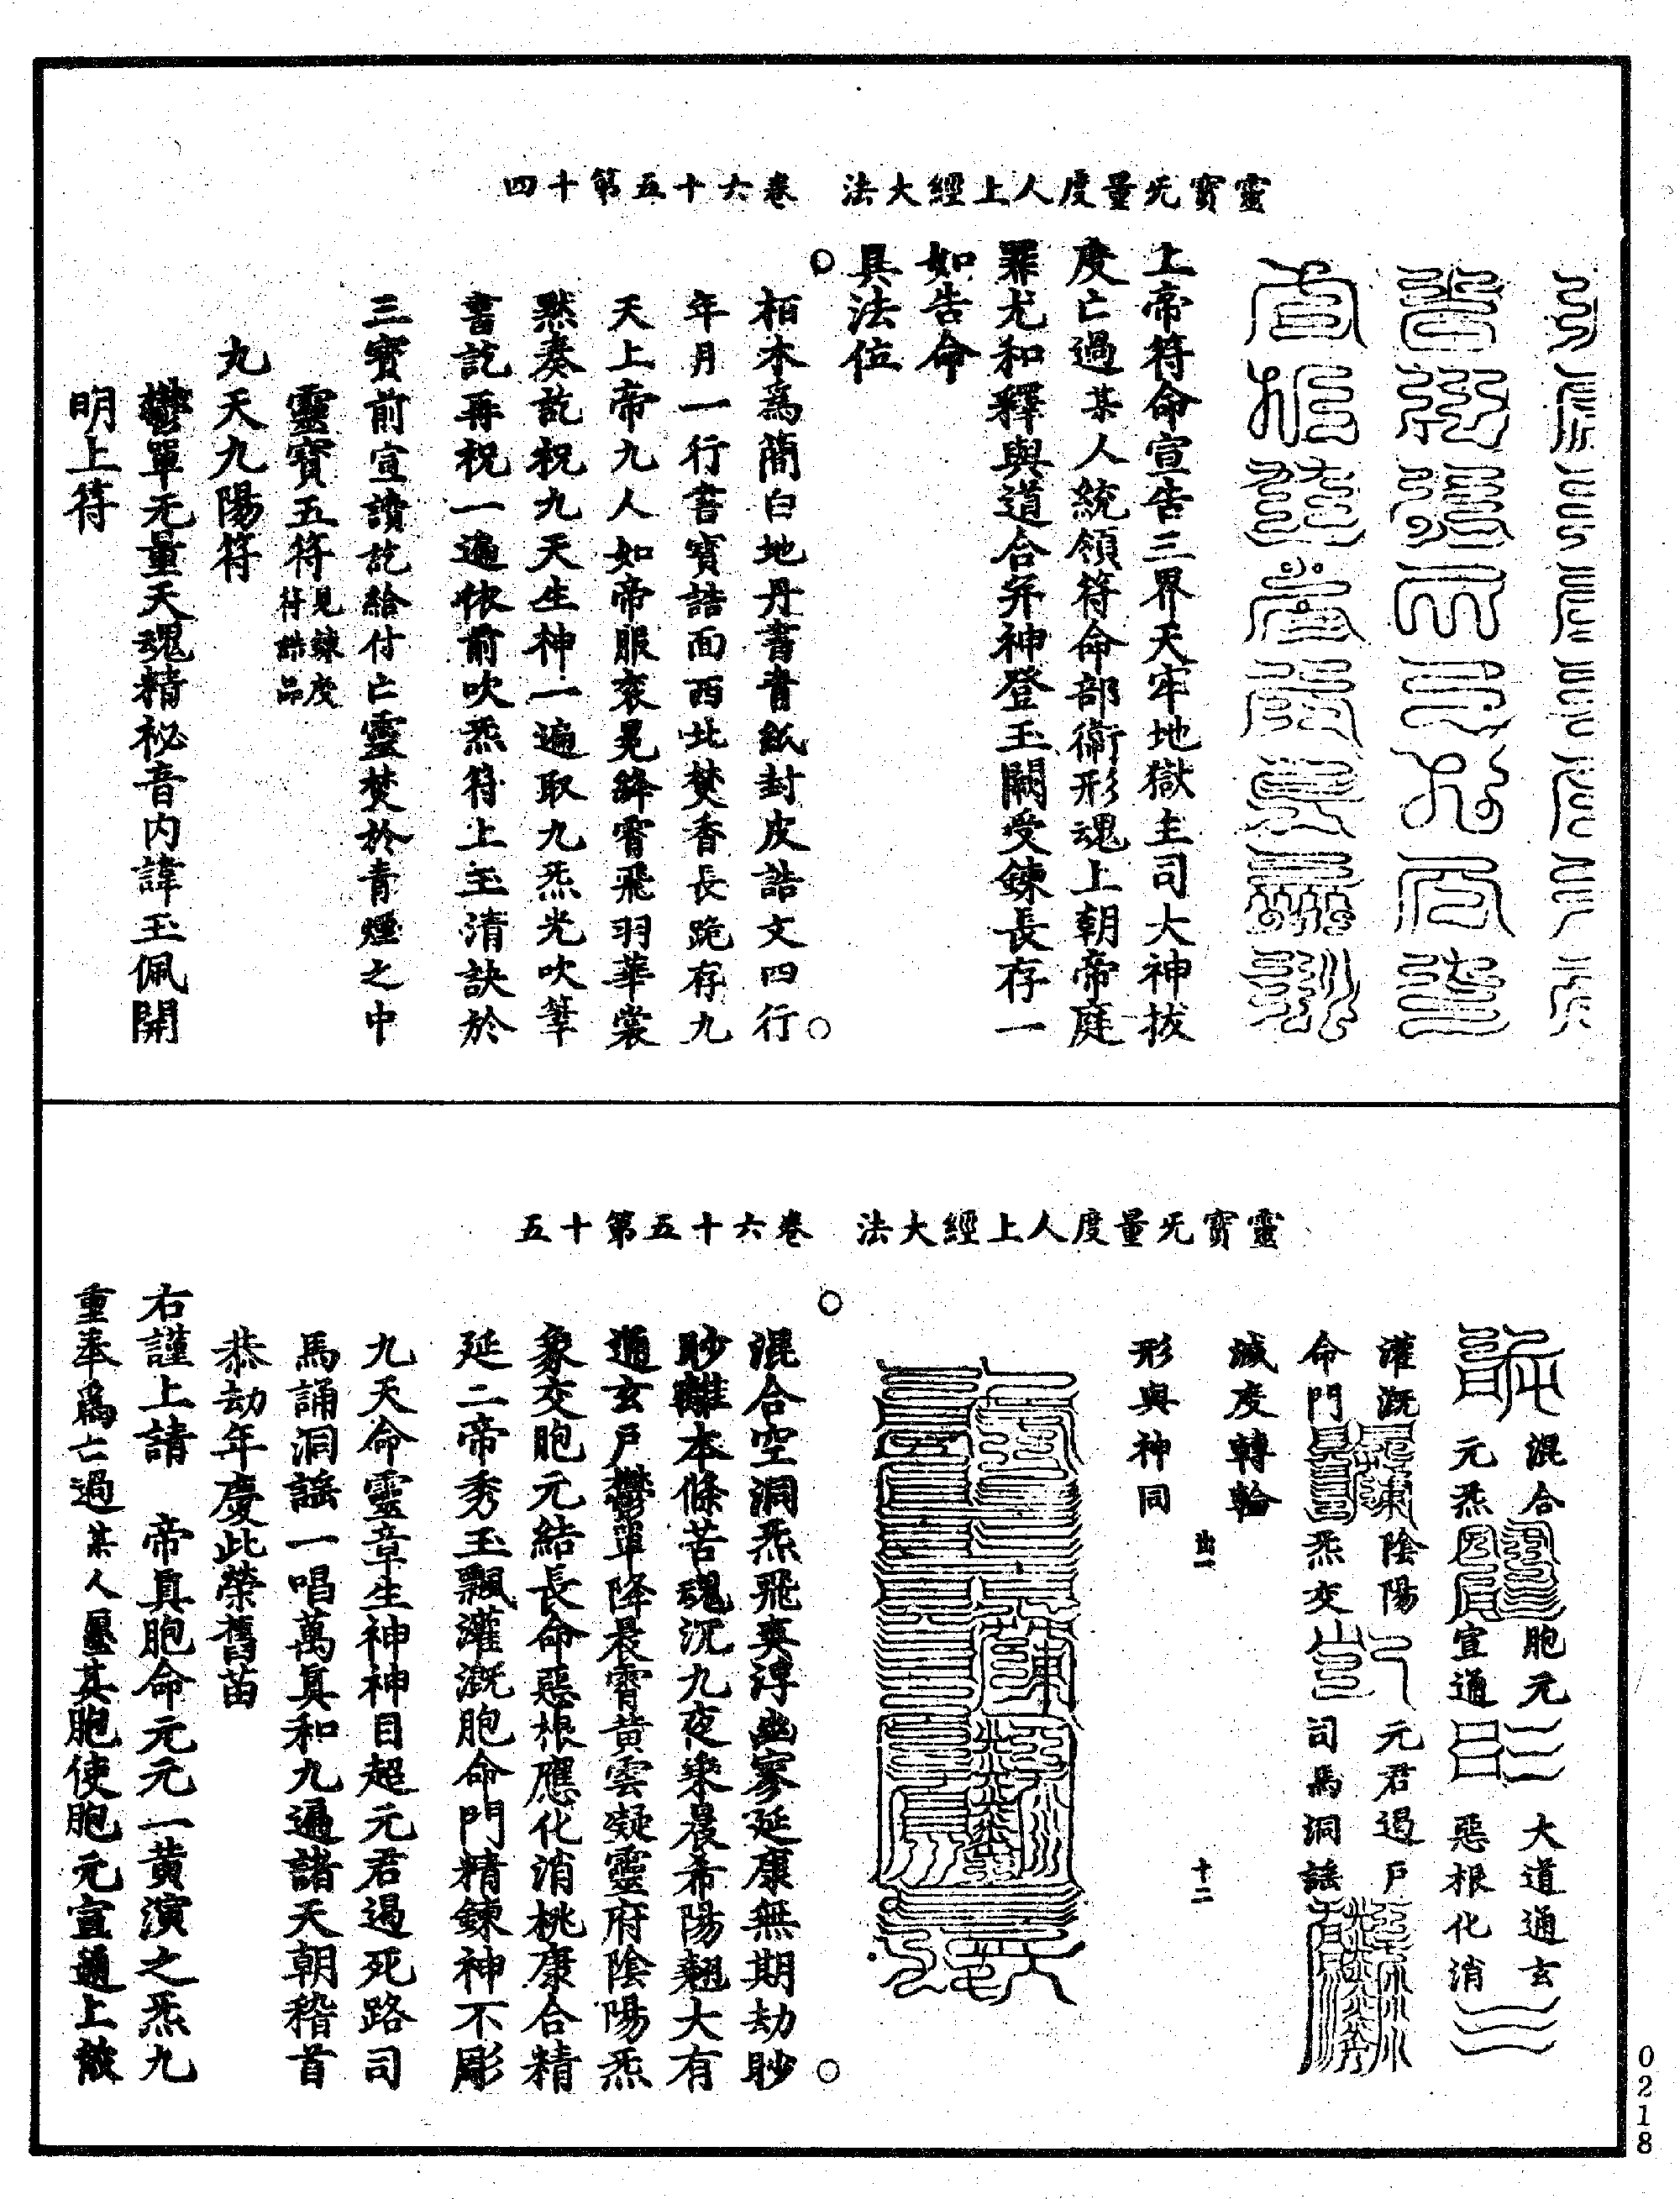 靈寶无量度人上經大法　卷六十五第十四
上帝符命宣告三界天牢地獄主司大神拔
度亡過某人統領符命部衛形魂上朝帝庭
罪尤和釋與道合并神登玉闕受鍊長存一
如告命
具法位
栢木爲簡白地丹書青紙封皮誥文四行
年月一行書寶誥面西北焚香長跪存九
天上帝九人如帝服衮冕絳霄飛羽華裳
黙奏訖祝九天生神一遍取九炁光吹筆
書訖再祝一遍依前吹炁符上玉清訣於
三寶前宣讀訖給付亡靈焚於青煙之中
靈寶五符見鍊度符誥品
九天九陽符
鬱單无量天魂精祕音内諱玉佩開
明上符
靈寶无量度人上經大法　卷六十五第十五
混合 胞元 大道通玄
元炁 宣通 惡根化消
灌溉 陰陽 元君遏戶
命門 炁交 司馬洞謡
滅度轉輪
出一 十二
形與神同
混合空洞炁飛爽浮幽寥延康無期劫眇
眇離本條苦魂沉九夜乗晨希陽翹大有
通玄戶鬱單降晨霄黄雲凝靈府陰陽炁
象交胞元結長命惡根應化消桃康合精
延二帝秀玉飄灌溉胞命門精鍊神不彫
九天命靈章生神神目超元君遏死路司
馬誦洞謡一唱萬真和九遍諸天朝稽首
恭劫年慶此榮舊苗
右謹上請　帝真胞命元元一黄演之炁九
重奉爲亡過某人 其胞使胞元宣通上徹
0218